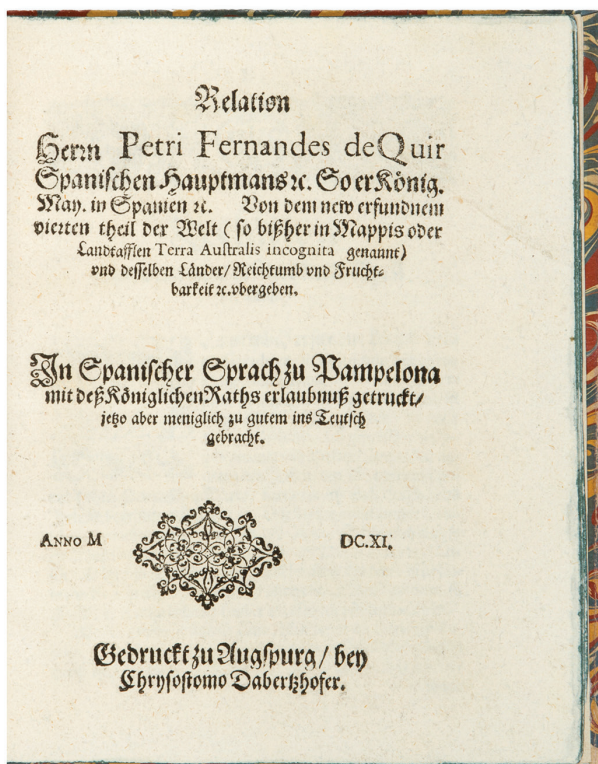 Relation
Herrn Petri Fernandes de Quir
Spanischen Hauptmans ꝛc. So er König.
May. in Spanien ꝛc. Von dem new erfundnem
vierten theil der Welt (so bißher in Mappis oder
Landtafflen Terra Australis incognita genannt)
vnd desselben Länder/ Reichtumb vnd Frucht-
barkeit ꝛc. vbergeben.
In Spanischer Sprach zu Pampelona
mit deß Königlichen Raths erlaubnuß getruckt/
jetzo aber meniglich zu gutem ins Teutsch
gebracht.
ANNO M DC.XI.
Gedruckt zu Augspurg/ bey
Chrysostomo Dabertzhofer.